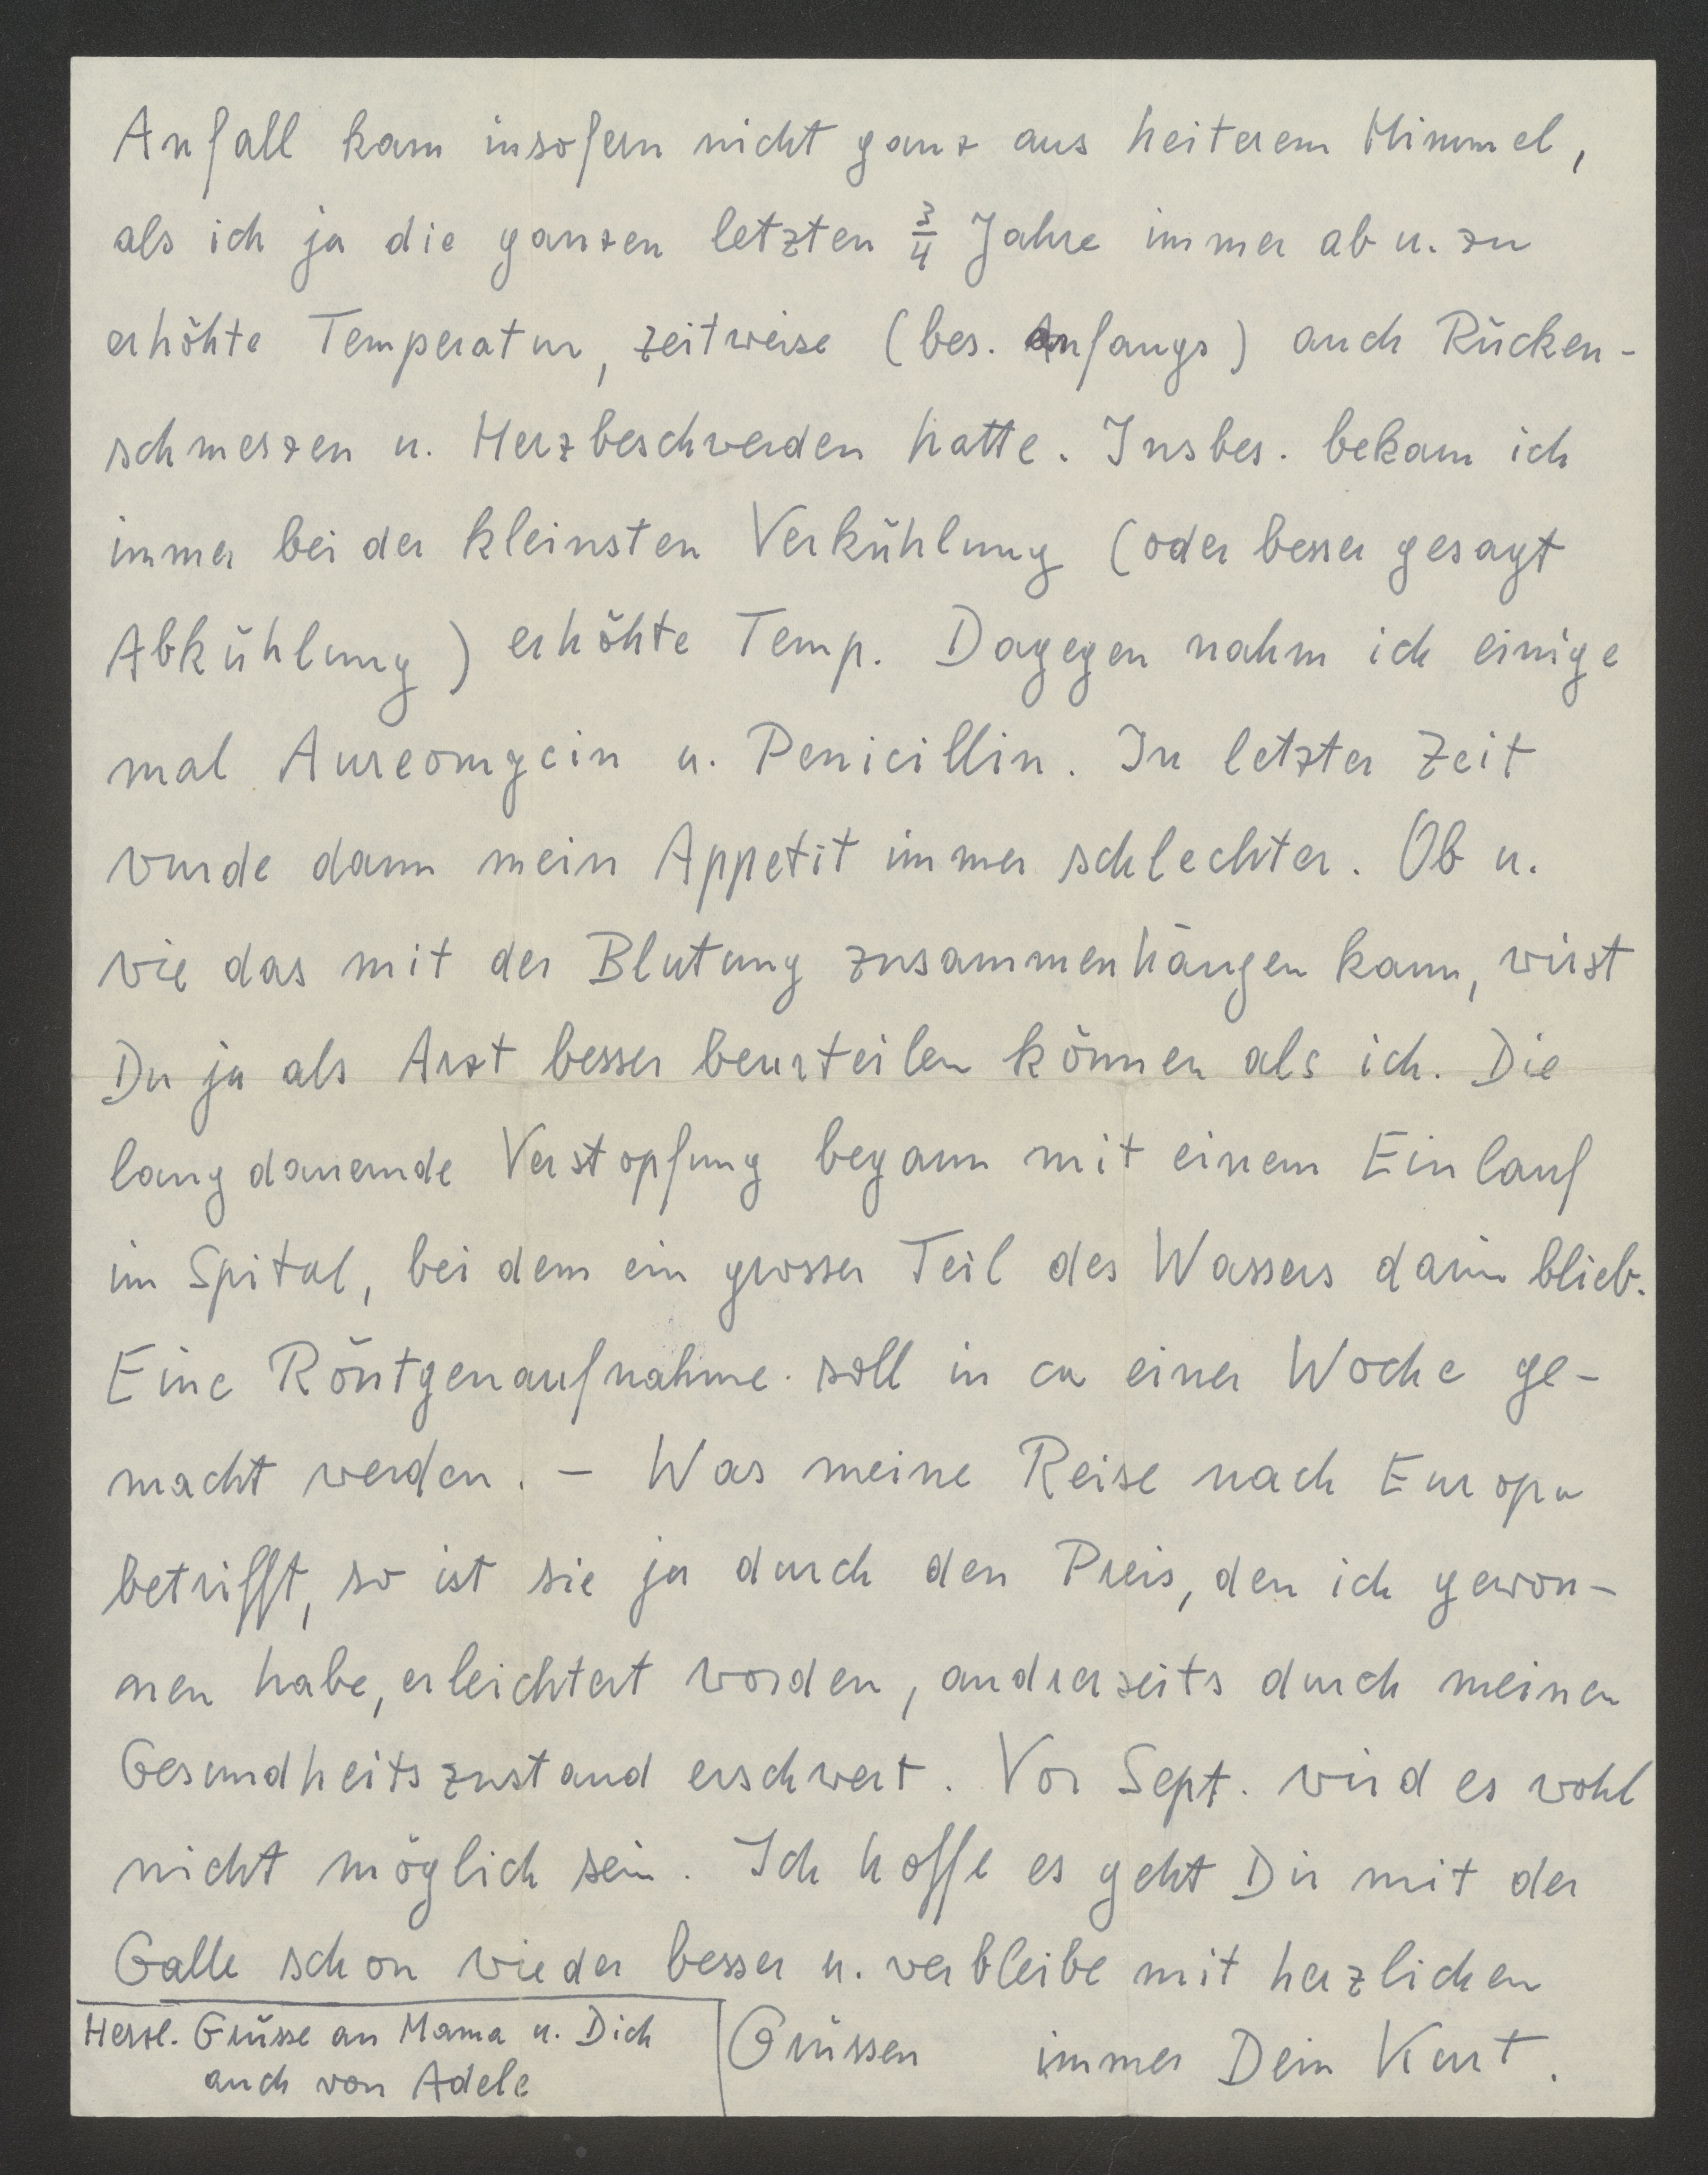 Anfall kam insofern nicht ganz aus heiterem Himmel,
als ich ja die ganzen letzten 3/4 Jahre immer ab u. zu
erhöhte Temperatur, zeitweise (bes. Anfangs) auch Rücken-
schmerzen u. Herzbeschwerden hatte. Insbes. bekam ich
immer bei der kleinsten Verkühlung (oder besser gesagt
Abkühlung) erhöhte Temp. Dagegen nahm ich einige
mal Aureomycin u. Penicillin. In letzter Zeit
wurde dann mein Appetit immer schlechter. Ob u.
wie das mit der Blutung zusammenhängen kann, wirst
Du ja als Arzt besser beurteilen können als ich. Die
lang dauernde Verstopfung begann mit einem Einlauf
im Spital, bei dem ein grosser Teil des Wassers darin blieb.
Eine Röntgenaufnahme soll in ca einer Woche ge-
macht werden. – Was meine Reise nach Europa
betrifft, so ist sie ja durch den Preis, den ich gewon-
nen habe, erleichtert worden, andrerseits durch meinen
Gesundheitszustand erschwert. Vor Sept. wird es wohl
nicht möglich sein. Ich hoffe es geht Dir mit der
Galle schon wieder besser u. verbleibe mit herzlichen
Grüssen immer Dein Kurt.
Herzl. Grüsse an Mama u. Dich
auch von Adele